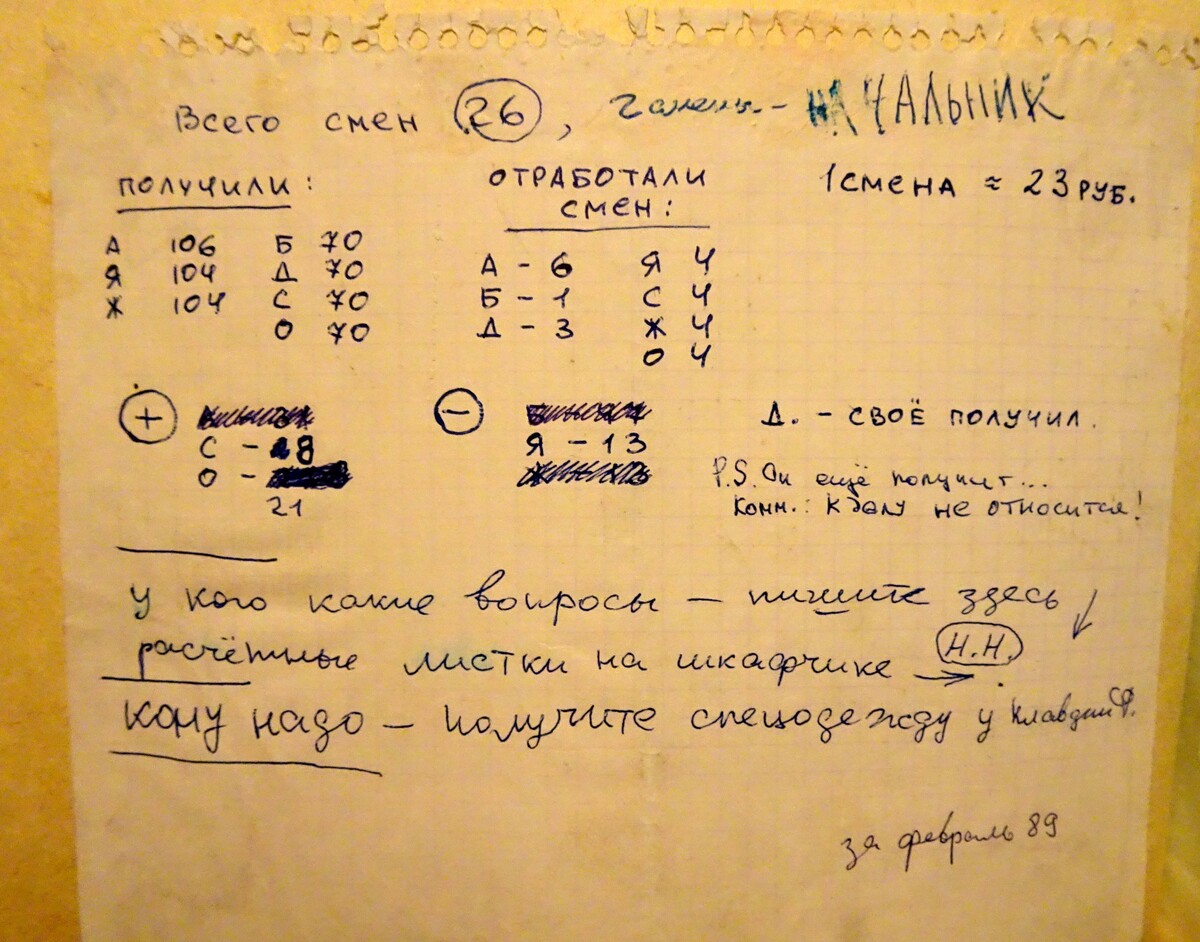 Всего смен 26, НАЧАЛЬНИК
ПОЛУЧИЛИ: ОТРАБОТАЛИ СМЕН: 1 СМЕНА ≈ 23 РУБ.
А 106 Б 70
Я 104 Д 70
Ж 104 С 70
О 70
А - 6 Я 4
Б - 1 С 4
Д - 3 Ж 4
О 4
+
С - 28
О -
21
−
Я - 13
Д. - СВОЁ ПОЛУЧИЛ.
P.S. Он ещё получит...
Комм.: К делу не относится!
У кого какие вопросы — пишите здесь
расчётные листки на шкафчике → Н.Н.
Кому надо — получите спецодежду у Клавдии Ф.
за февраль 89